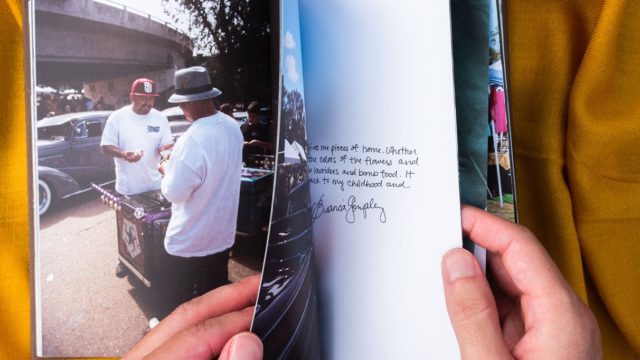 ive me pieces of home. Whether
he colors of the flowers and
lowriders and bomb food. It
ack to my childhood and
Bianca Gonzalez